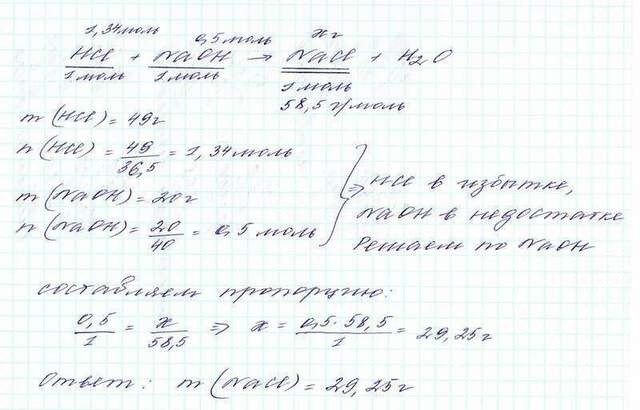 1,34моль 0,5моль xг
HCl + NaOH → NaCl + H₂O
1моль 1моль 1моль
58,5г/моль
m(HCl) = 49г
n(HCl) = 49/36,5 = 1,34моль
m(NaOH) = 20г
n(NaOH) = 20/40 = 0,5 моль
⇒ HCl в избытке,
NaOH в недостатке
Решаем по NaOH
составляем пропорцию:
0,5/1 = x/58,5 ⇒ x = 0,5·58,5/1 = 29,25г
Ответ: m(NaCl) = 29,25г